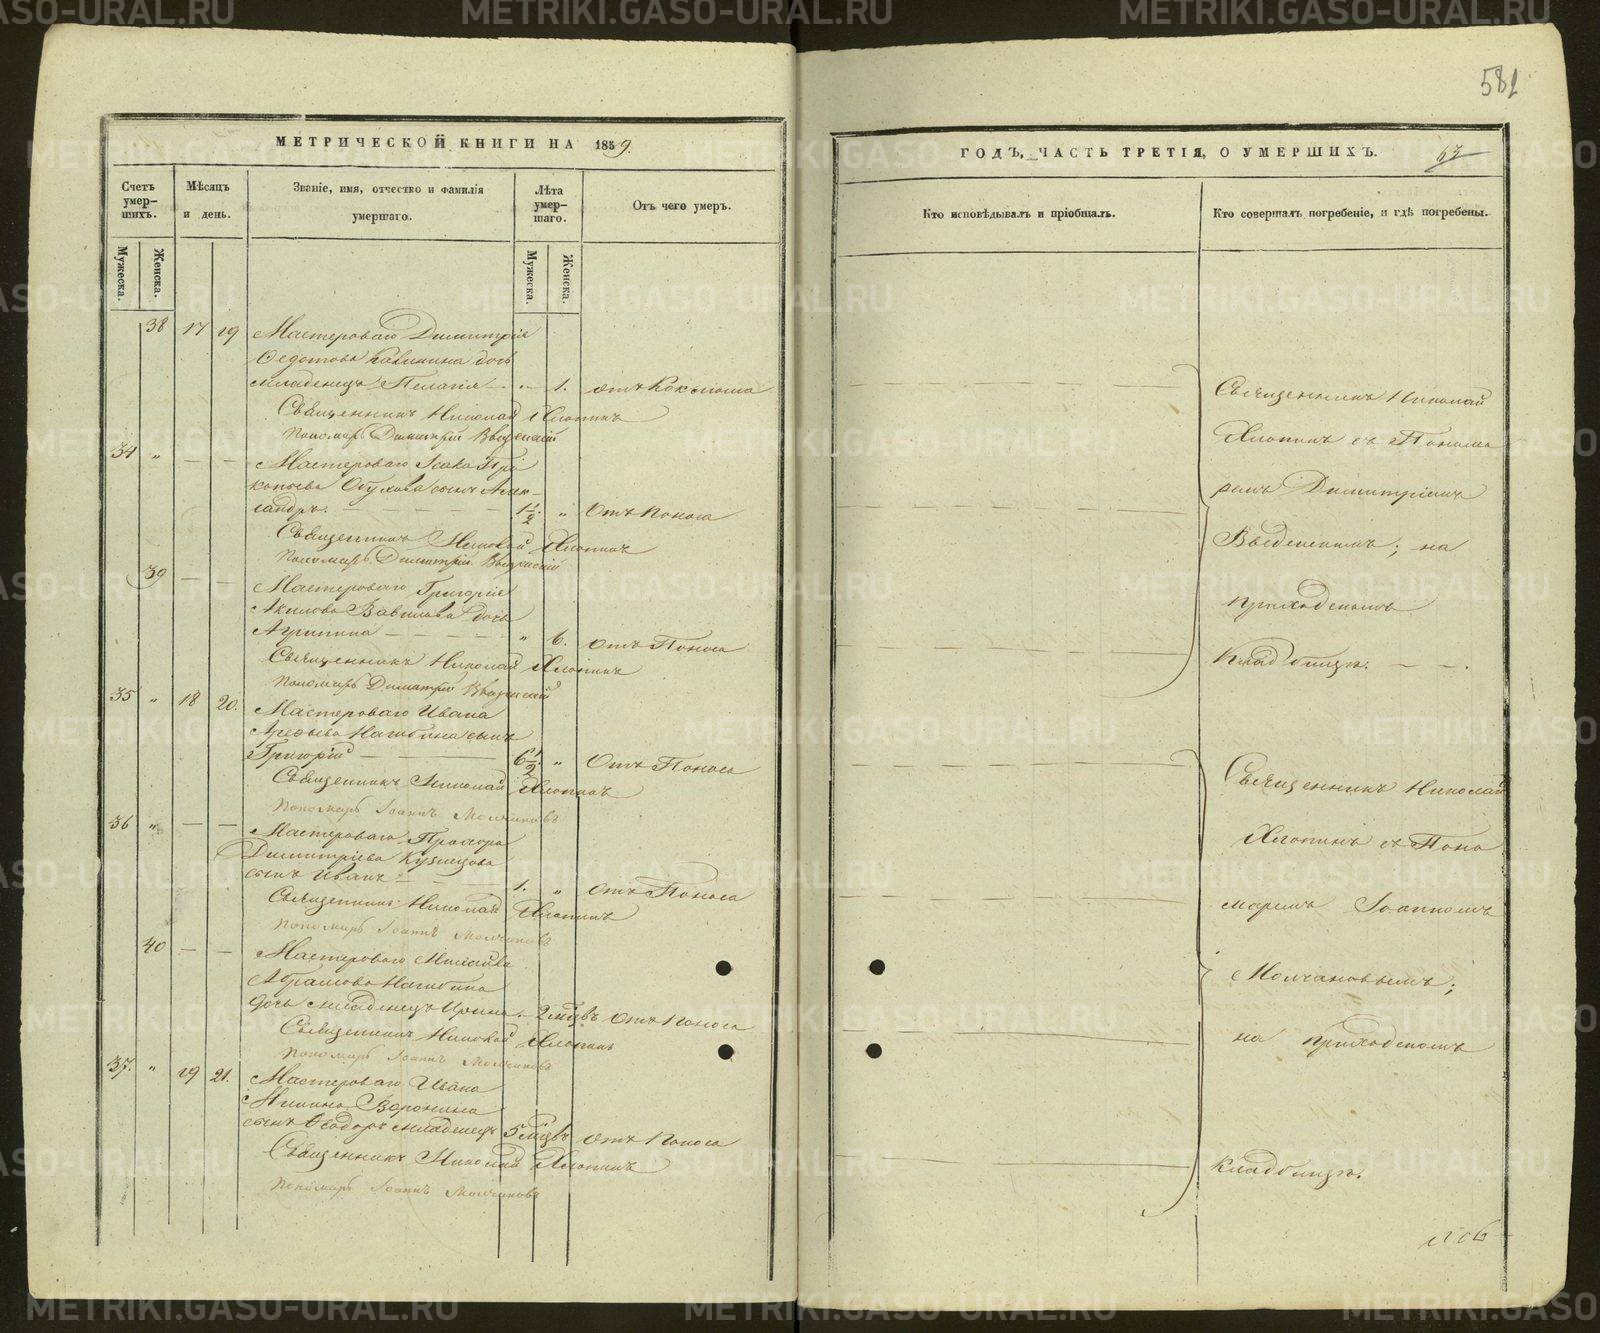 581
МЕТРИЧЕСКОЙ КНИГИ НА 1859.
Счетъ умер-шихъ.
Мѣсяцъ и день.
Званіе, имя, отчество и фамилія умершаго.
Лѣта умер-шаго.
Отъ чего умеръ.
Мужеска.
Женска.
Мужеска.
Женска.
38 17 19 Мастероваго Димитрія
Федотова Калинина дочь
младенецъ Пелагія — „ 1. отъ Коклюша
Священникъ Николай Хлопинъ
Пономарь Димитрій Введенскій
34 „ — — Мастероваго Исака Про
копьева Обухова сынъ Алек-
сандръ. — 1 1/2 „ Отъ Поноса
Священникъ Николай Хлопинъ
Пономарь Димитрій Введенскій
39 — — Мастероваго Григорія
Акилова Вавилова дочь
Агрипина — „ 6. отъ Поноса
Священникъ Николай Хлопинъ
Пономарь Димитрій Введенскій
35 „ 18 20. Мастероваго Ивана
Арефьева Нагибина сынъ
Григорій — 6 1/2 „ Отъ Поноса
Священникъ Николай Хлопинъ
Пономарь Іоаннъ Молчановъ
36 „ — — Мастероваго Прохора
Димитріева Кузнецова
сынъ Иванъ — 1. „ отъ Поноса
Священникъ Николай Хлопинъ
Пономарь Іоаннъ Молчановъ
40 — — Мастероваго Михайла
Абрамова Нагибина
дочь младенецъ Ирина. — 2 мцвъ отъ Поноса
Священникъ Николай Хлопинъ
Пономарь Іоаннъ Молчановъ
37. „ 19 21. Мастероваго Ивана
Минина Воронина
сынъ Ѳеодоръ младенецъ 5 мцвъ отъ Поноса
Священникъ Николай Хлопинъ
Пономарь Іоаннъ Молчановъ
ГОДЪ, ЧАСТЬ ТРЕТІЯ, О УМЕРШИХЪ.
63
Кто исповѣдывалъ и пріобщалъ.
Кто совершалъ погребеніе, и гдѣ погребены.
Священникъ Николай
Хлопинъ съ Понома
ремъ Димитріемъ
Введенскимъ; на
приходскомъ
Кладбищѣ. — —.
Священникъ Николай
Хлопинъ съ Поно
маремъ Іоанномъ
Молчановымъ;
на приходскомъ
Кладбищѣ.
METRIKI.GASO-URAL.RU